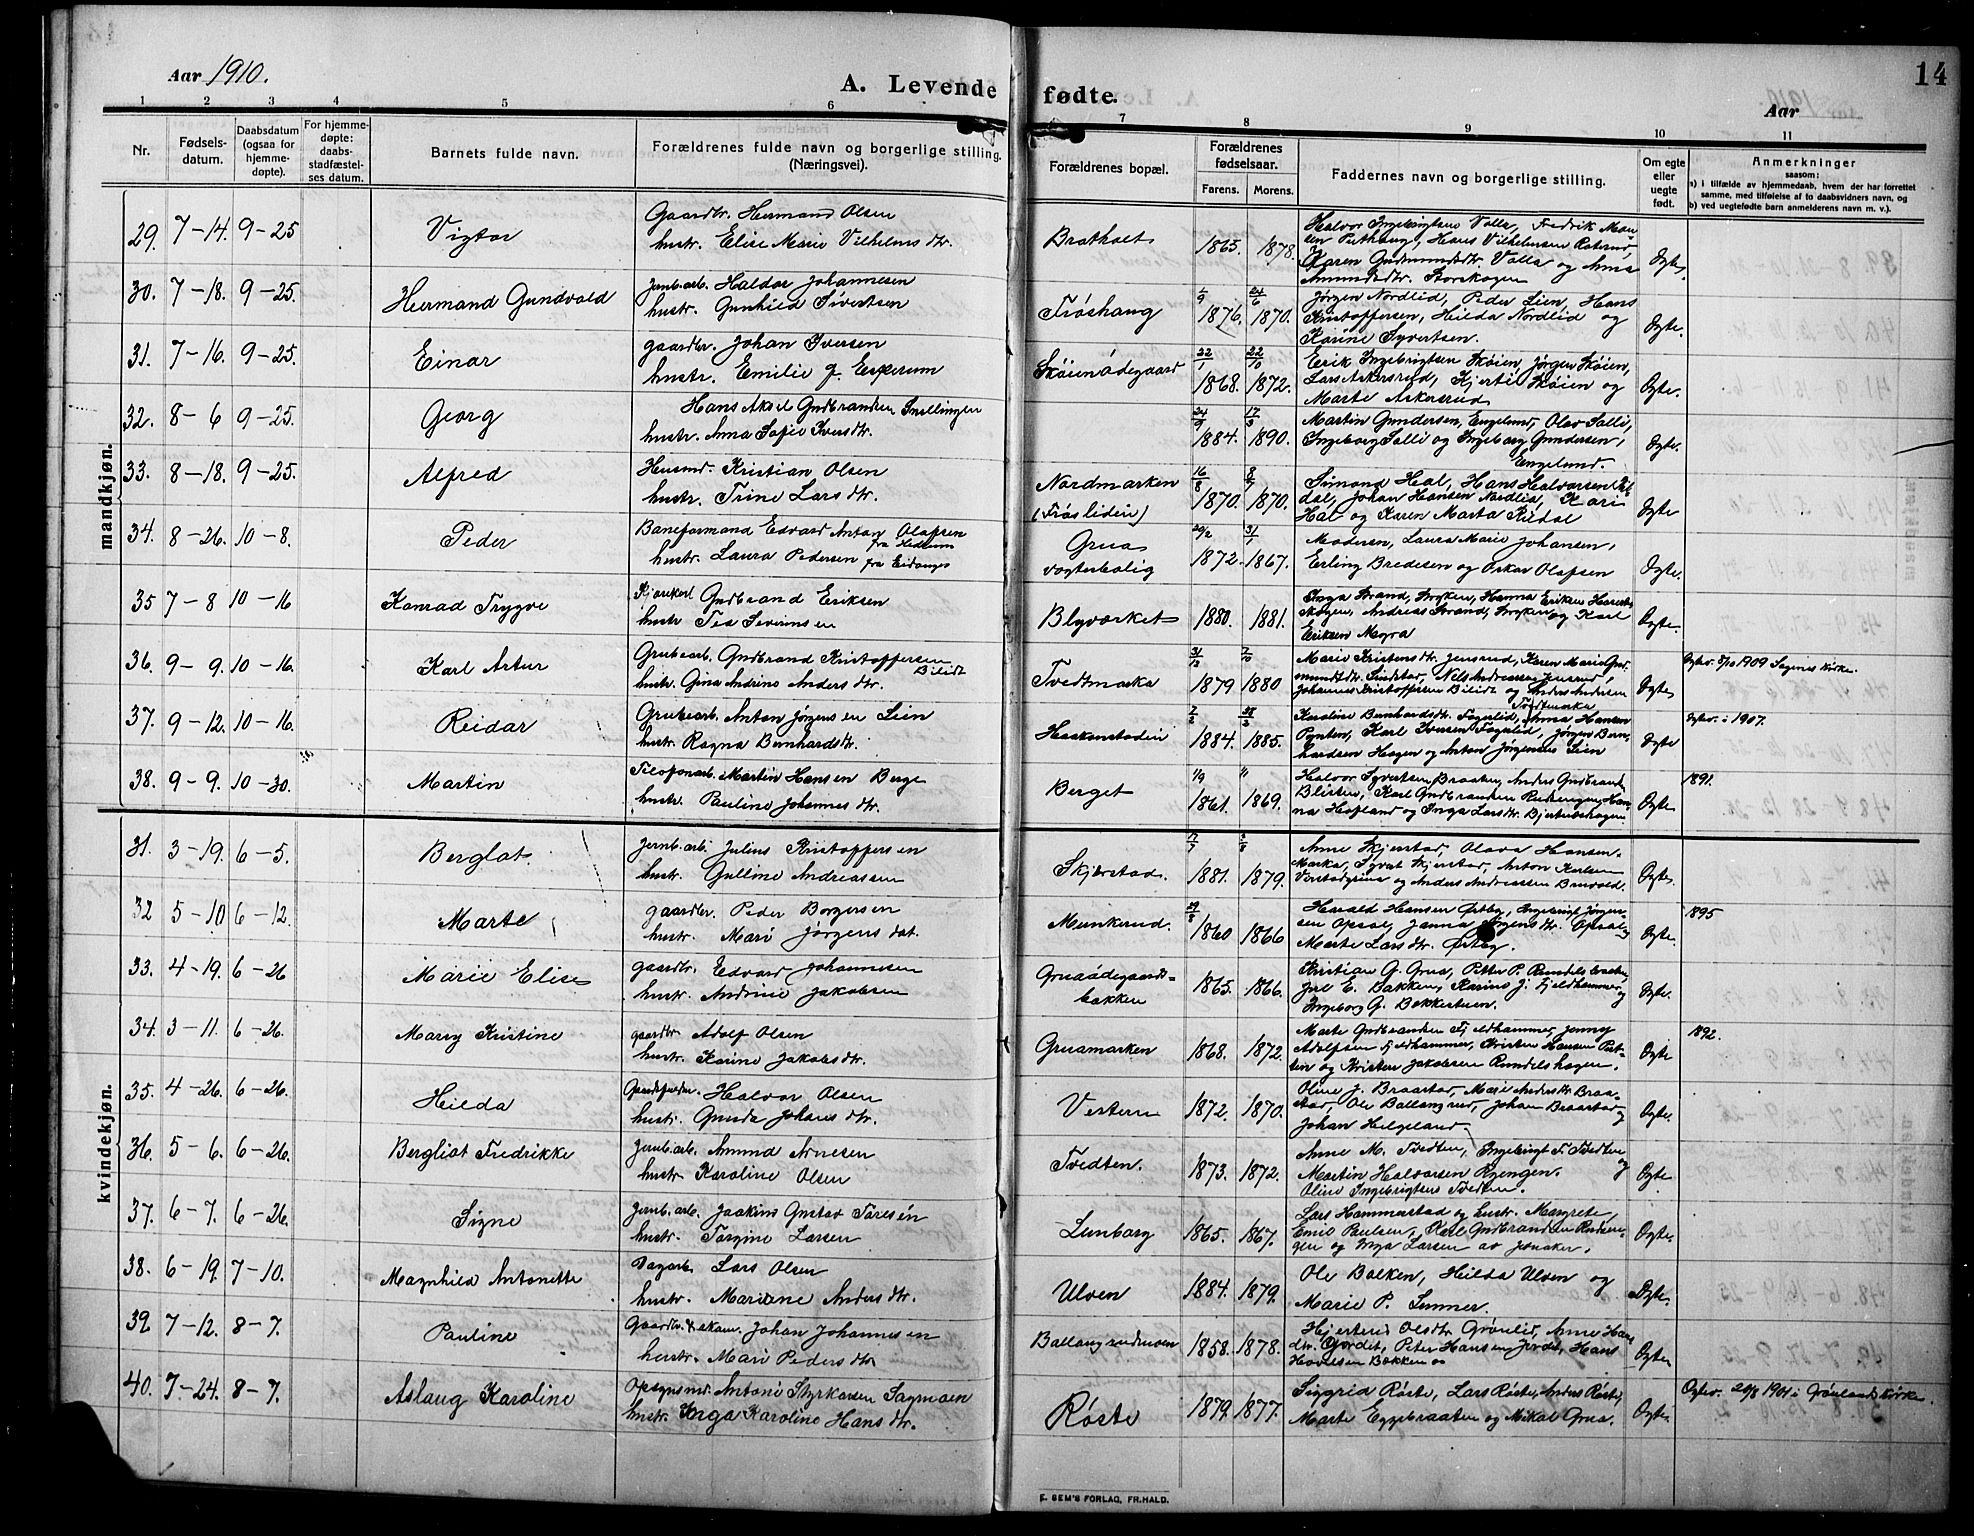 Aar 1910.
A. Levende fødte.
Aar
14
1 2 3 4 5 6 7 8 9 10 11
Nr.
Fødsels-
datum.
Daabsdatum
(ogsaa for
hjemme-
døpte).
For hjemme-
døpte:
daabs-
stadfæstel-
ses datum.
Barnets fulde navn.
Forældrenes fulde navn og borgerlige stilling.
(Næringsvei).
Forældrenes bopæl.
Forældrenes
fødselsaar.
Farens. Morens.
Faddernes navn og borgerlige stilling.
Om egte
eller
uegte
født.
Anmerkninger
saasom:
a) i tilfælde av hjemmedaab, hvem der har forrettet
samme, med tilføielse af to daabsvidners navn, og
b) ved uegtefødte barn anmelderens navn m. v.).
mandkjøn.
29. 7-14. 9-25 Vigtor
Gaardbr. Hermand Olsen
hustr. Elise Marie Vilhelms dtr.
Bratholt 1865. 1878.
Halvor Ingebrigtsen Valla, Fredrik
Hans Vilhelmsen
Karen Gudmundsdtr. Valla og Anna
Amundsdtr. Storskogen
Egte.
30. 7-18. 9-25. Hermand Gundvald
Jernb.arb. Haldor Johannesen
hustr. Gunhild Sivertsen
Trøshaug 1/9 1876. 24/6 1870.
Jørgen Nordlid, Peder Lien, Hans
Kristoffersen, Hilda Nordlid og
Karine Syvertsen.
Egte.
31. 7-16. 9-25. Einar
gaardbr. Johan Iversen
hustr. Emilie J. Esperum
Skøienødegaard 22/1 1868. 22/10 1872.
Erik Ingebrigtsen Skøien, Jørgen Skøien,
Lars Askersrud, Kjersti Skøien og
Marte Askersrud
Egte.
32. 8-6 9-25. Georg
Hans Aksel Gudbrandsen Snellingen
hustr. Anna Sofie Iversdtr.
24/9 1884. 17/3 1890.
Martin Gundersen, Engelund, Olav Salli,
Ingeborg Salli og Ingeborg Gundersen,
Engelund.
Egte.
33. 8-18. 9-25. Alfred
Husmd. Kristian Olsen
hustr. Trine Lars dtr.
Nordmarken
(Trøsliden)
16/8 1870. 8/7 1870.
Simond Hal, Hans Halvorsen Kil-
dal, Johan Hansen Nordlid, Kari
Hal og Karen Marta Kildal
Egte
34. 8-26. 10-8. Peder
Baneformand Edvard Anton Olafsen
hustr. Laura Pedersen fra Eidanger
Grua
vogterbolig
20/2 1872. 31/1 1867.
Moderen, Laura Marie Johansen,
Erling Bredesen og Oskar Olafsen
Egte.
35 7-8 10-16 Konrad Trygve
Kjørekarl Gudbrand Eriksen
hustr Tea Severinsen
Blyværket 1880. 1881.
Inga Strand, Hanna Eriksen
Andreas Strand, og Karl
Eriksen Mogra
Egte.
36. 9-9. 10-16. Karl Artur
Grubearb. Gudbrand Kristoffersen
Bilidt
hustr. Gina Andrine Anders dtr.
Tvedtmarka 31/12 1879 7/10 1880
Marie Kristensdtr. Jensrud, Karen Marie Gud-
mundsdtr. Nils Andreassen Jensrud,
Johannes Kristoffersen Bilidt og Anders Andersen
Tvedtmarka
Egte
Egtev. 8/10 1909 Kirke.
37. 9-12. 10-16 Reidar
Grubearb. Anton Jørgensen Lien
hustr. Ragna Bernhardsdtr.
Haakenstadei 7/2 1884. 1885.
Karoline Bernhardsdtr. Fagerlid, Anna Hansen
Karl Iversen Fagerlid, Jørgen Bern-
hardsen Hagen og Anton Jørgensen Lien
Egte
Egtev. i 1907.
38. 9-9. 10-30. Martin
Telefonarb. Martin Hansen Berge
hustr. Pauline Johannes dtr.
Berget 1/9 1861. 1869.
Halvor Syvertsen Braaten, Anders Gudbrand
Karl Gudbrandsen Rudsengen, Han-
na Hofland og Inga Larsdtr. Bjerkeskogen
Egte
1891.
kvindekjøn.
31. 3-19. 6-5. Bergliot.
Jernb.arb. Julius Kristoffersen
hustr. Gulline Andreassen
Skjerstad. 17/7 1881. 2/8 1879.
Anne Skjerstad, Olava Hansen
Marka, Syvert Skjerstad, Anton Karlsen
og Anders Andreassen Bruvold.
Egte.
32 5-10 6-12. Marte
gaardbr. Peder Borgersen
hustr. Mari Jørgens dat.
Munkerud. 29/8 1860 1866
Harald Hansen Østby, Ingebrigt Jørgen-
sen Opsal, Janna Jørgensdtr. Opsal og
Marte Lars dtr. Østby.
Egte.
1895
33. 4-19. 6-26 Marie Elise
gaardbr. Edvard Johannesen
hustr. Andrine Jakobsen
Gruaødegaards-
bakken
1865. 1866.
Kristian G. Grua, Petter P.
E. Bakken, Karine J. Fjeldhammer og
Ingeborg G. Bekkestuen.
Egte.
34. 3-11. 6-26. Mary Kristine
gaardbr. Adolf Olsen
hustr. Karine Jakobsdtr.
Gruamarken 1868. 1872.
Marte Gudbrandsen Fjeldhammer, Jenny
Adolfsen Fjeldhammer, Kristen Hansen
og Kristen Jakobsen Rundelshagen.
Egte
1892.
35. 4-26. 6-26. Hilda
Gaardsfæster Halvor Olsen
hustr. Gunda Johans dtr.
Vestern 1872. 1870.
Oline J. Braastad, Mari Andersdtr. Braa-
stad, Ole Ballangrud, Johan Braastad og
Johan Helgeland.
Egte.
36. 5-6. 6-26. Bergliot Fredrikke
Jernb.arb. Amund Arnesen
hustr. Karoline Olsen
Tvedten. 1873. 1872.
Anne M. Tvedten, Ingebrigt F. Tvedten og
Martin Halvorsen Ryengen.
Oline Ingebrigtsen Tvedten.
Egte.
37. 6-7. 6-26. Signe
Jernb.arb. Joakim Gustav Toresen
hustr. Torgine Larsen
Lunborg 1865. 1867.
Lars Hammerstad og hustr. Margrete,
Emil Paulsen, Karl Gudbrandsen Rudsen-
gen og Inga Larsen av Jevnaker.
Egte.
38. 6-19. 7-10. Magnhild Antonette
Dagarb. Lars Olsen
hustr. Mariane Anders dtr.
Ulven 1884. 1879.
Ole Bakken, Hilda Ulven og
Marie P. Lunner.
Egte.
39. 7-12. 8-7. Pauline
Gaardbr. & skom. Johan Johannesen
hustr. Mari Peders dtr.
Ballangrudmoen 1858. 1878.
Hjertrud Olsdtr. Grønlid, Anne Hans
dtr. Gjordet, Peter Hansen Jordet, Hans
Hovelsen Bakken
Egte
40. 7-24. 8-7. Aslaug Karoline
Opsynsmd. Antoni Styrkarsen Sagmoen
hustr. Inga Karoline Hans dtr.
Røste 1879. 1877.
Sigrid Røste, Lars Røste, Anders Røste,
Marte Eggebraaten og Mikal Grua.
Egte.
Egtev. 20/8 1901 i Grønlands Kirke.
E. SEM'S FORLAG, FR.HALD.